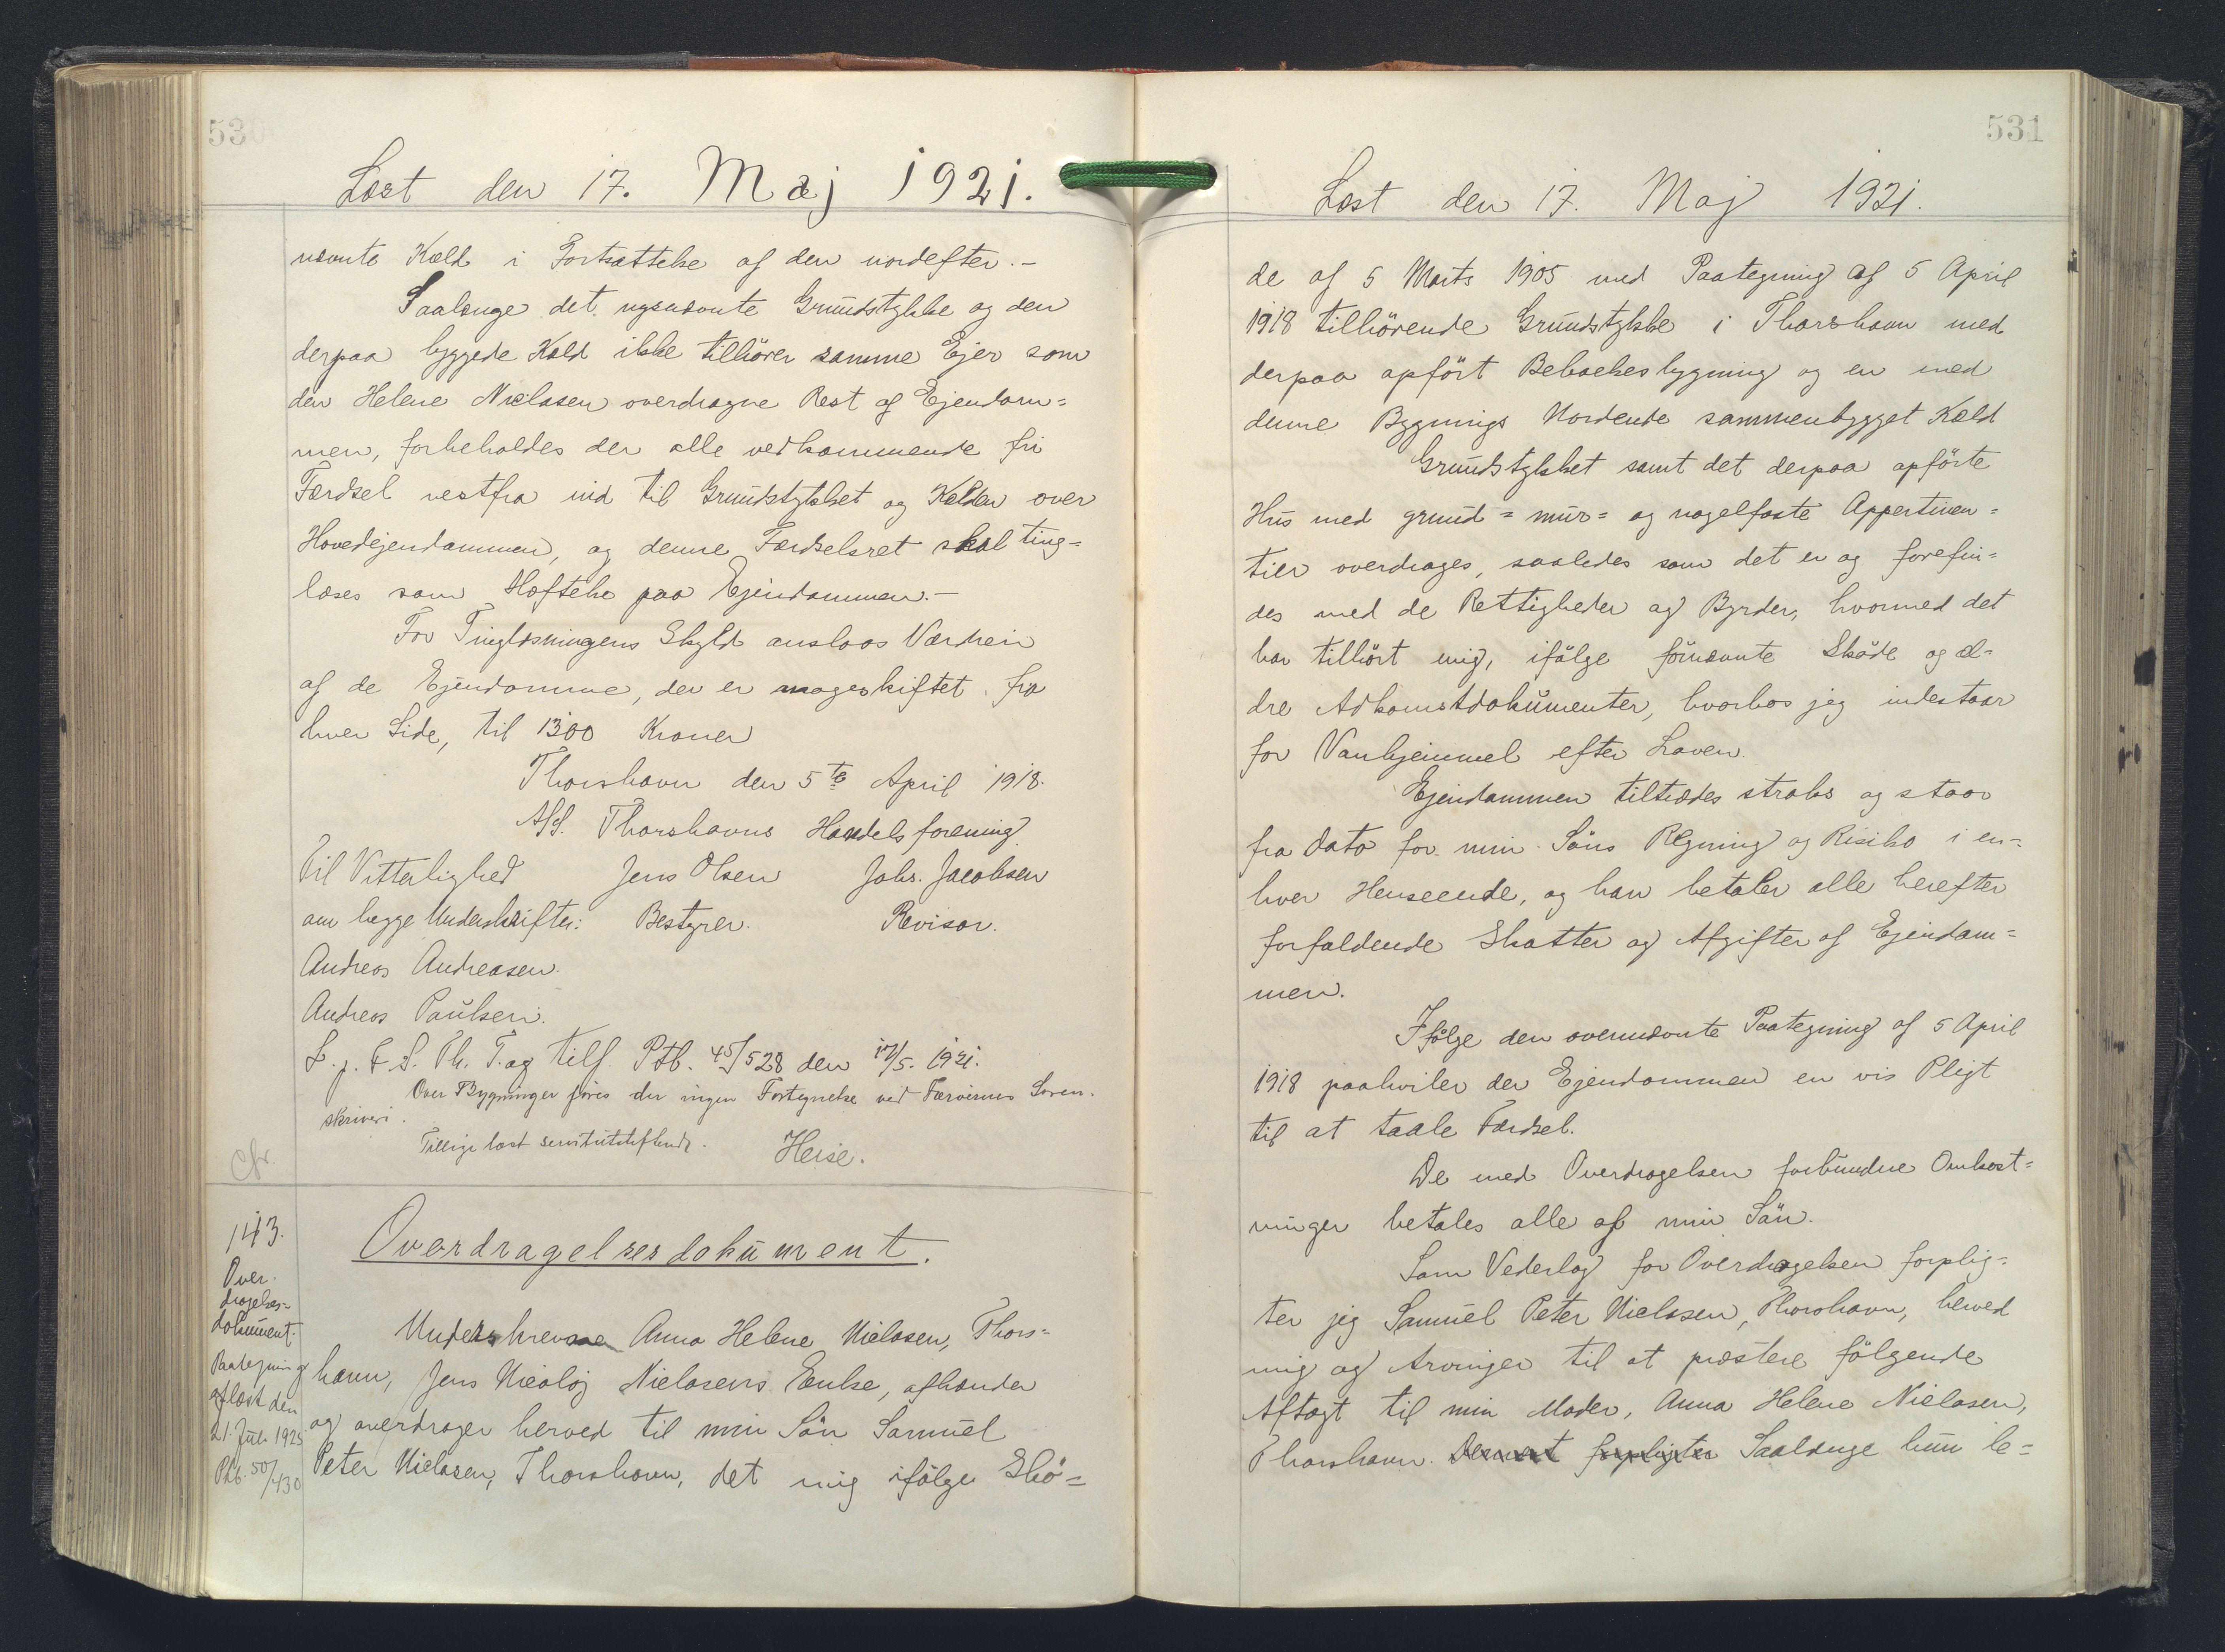 530
Læst den 17. Maj 1921.
nævnte Kæld i Fortsættelse af den nordefter.-
Saalænge det nysnævnte Grundstykke og den
derpaa byggede Kæld ikke tilhører samme Ejer som
den Helene Nielasen overdragne Rest af Ejendom=
men, forbeholdes der alle vedkommende fri
Færdsel vestfra ind til Grundstykket og Kælden over
Hovedejendommen, og denne Færdselsret skal ting=
læses som Hæftelse paa Ejendommen.-
For Tinglæsningens Skyld ansloos Værdien
af de Ejendomme, der er mageskiftet fra
hver Side, til 1300 Kroner
Thorshavn den 5te April 1918.
A/S. Thorshavns Handelsforening
Til Vitterlighed Jens Olsen Johs. Jacobsen
om begge Underskrifter: Bestyrer. Revisor.
Andreas Andreasen.
Andreas Paulsen.
L. p. F. S. Th. T. og tilf. Ptb. 45/528 den 17/5. 1921.
Over Bygninger føres der ingen Fortegnelse ved Færøernes Soren=
skriveri.
Tillige læst servitutstiftende. Heise.
Cfr.
143.
Over-
dragelses=
dokument.
Paategning
aflæst den
21. Juli 1925
Ptb. 50/430
Overdragelsesdokument.
Underskrevne Anna Helene Nielasen, Thors=
havn, Jens Nicoloj Nielasens Enke, afhænder
og overdrager herved til min Sön Samuel
Peter Nielasen, Thorshavn, det mig ifölge Skö=
531
Læst den 17. Maj 1921.
de af 5 Marts 1905 med Paategning af 5 April
1918 tilhörende Grundstykke i Thorshavn med
derpaa opfört Beboelsesbygning og en med
denne Bygnings Nordende sammenbygget Kæld
Grundstykket samt det derpaa opförte
Hus med grund= mur= og nagelfaste Appertinen=
tier overdrages, saaledes som det er og forefin=
des med de Rettigheder og Byrder, hvormed det
har tilhört mig, ifölge förnævnte Sköde og æl=
dre Adkomstdokumenter, hvorhos jeg indestaar
for Vanhjemmel efter Loven.
Ejendommen tiltrædes straks og staar
fra Dato for min Söns Regning og Risiko i en=
hver Henseende, og han betaler alle herefter
forfaldende Skatter og Afgifter af Ejendom=
men.
Ifölge den ovennævnte Paategning af 5 April
1918 paahviler der Ejendommen en vis Pligt
til at taale Færdsel.
De med Overdragelsen forbundne Omkost=
ninger betales alle af min Sön.
Som Vederlag for Overdragelsen forplig=
ter jeg Samuel Peter Nielasen, Thorshavn, herved
mig og Arvinger til at præstere fölgende
Aftægt til min Moder, Anna Helene Nielasen,
Thorshavn. Dernæst forpligter Saalænge hun le=